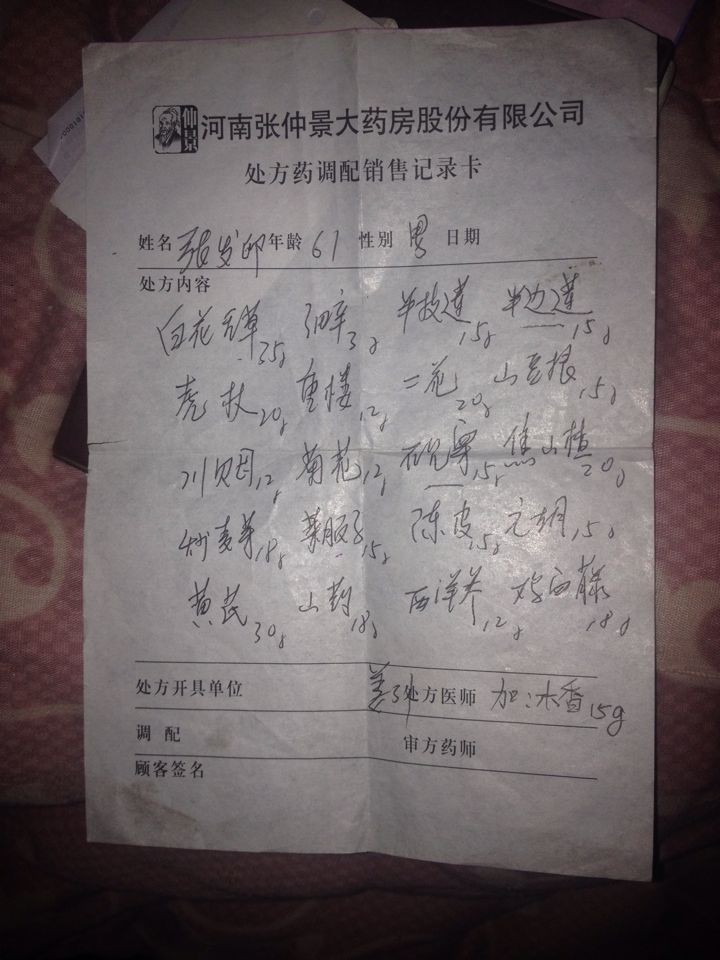 仲景
河南张仲景大药房股份有限公司
处方药调配销售记录卡
姓名 张发印 年龄 61 性别 男 日期
处方内容
白花舌草 35g 细辛 3g 半枝莲 15g 半边莲 15g
虎杖 20g 重楼 12g 二花 20g 山豆根 15g
川贝母 12g 菊花 12g 15g 焦山楂 20g
炒麦芽 18g 莱服子 15g 陈皮 15g 元胡 15g
黄芪 30g 山药 18g 西洋参 12g 18g
处方开具单位 姜引 处方医师 加:木香 15g
调 配 审方药师
顾客签名